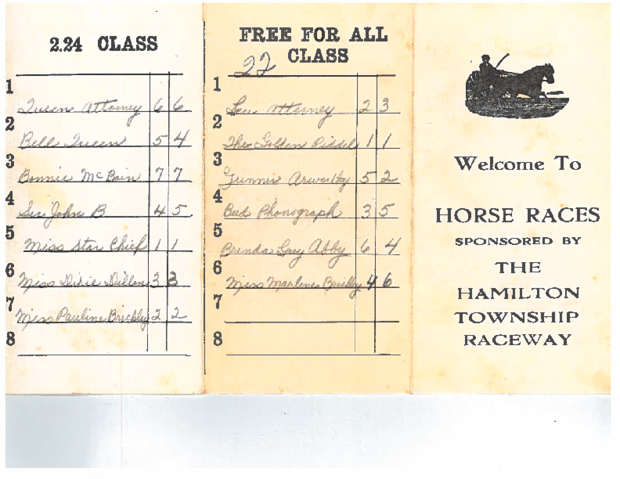 2.24 CLASS
1 Queen Attorney 6 6
2 Belle Queen 5 4
3 Bonnie McBain 7 7
4 Sir John B 4 5
5 Miss Star Chief 1 1
6 Miss Dixie Dillen 3 3
7 Miss Pauline Brickley 2 2
8
FREE FOR ALL
CLASS
22
1 Attorney 2 3
2 The Golden 1 1
3 5 2
4 Bud Phonograph 3 5
5 Brenda Abby 6 4
6 Miss Marlene Brickley 4 6
7
8
Welcome To
HORSE RACES
SPONSORED BY
THE
HAMILTON
TOWNSHIP
RACEWAY